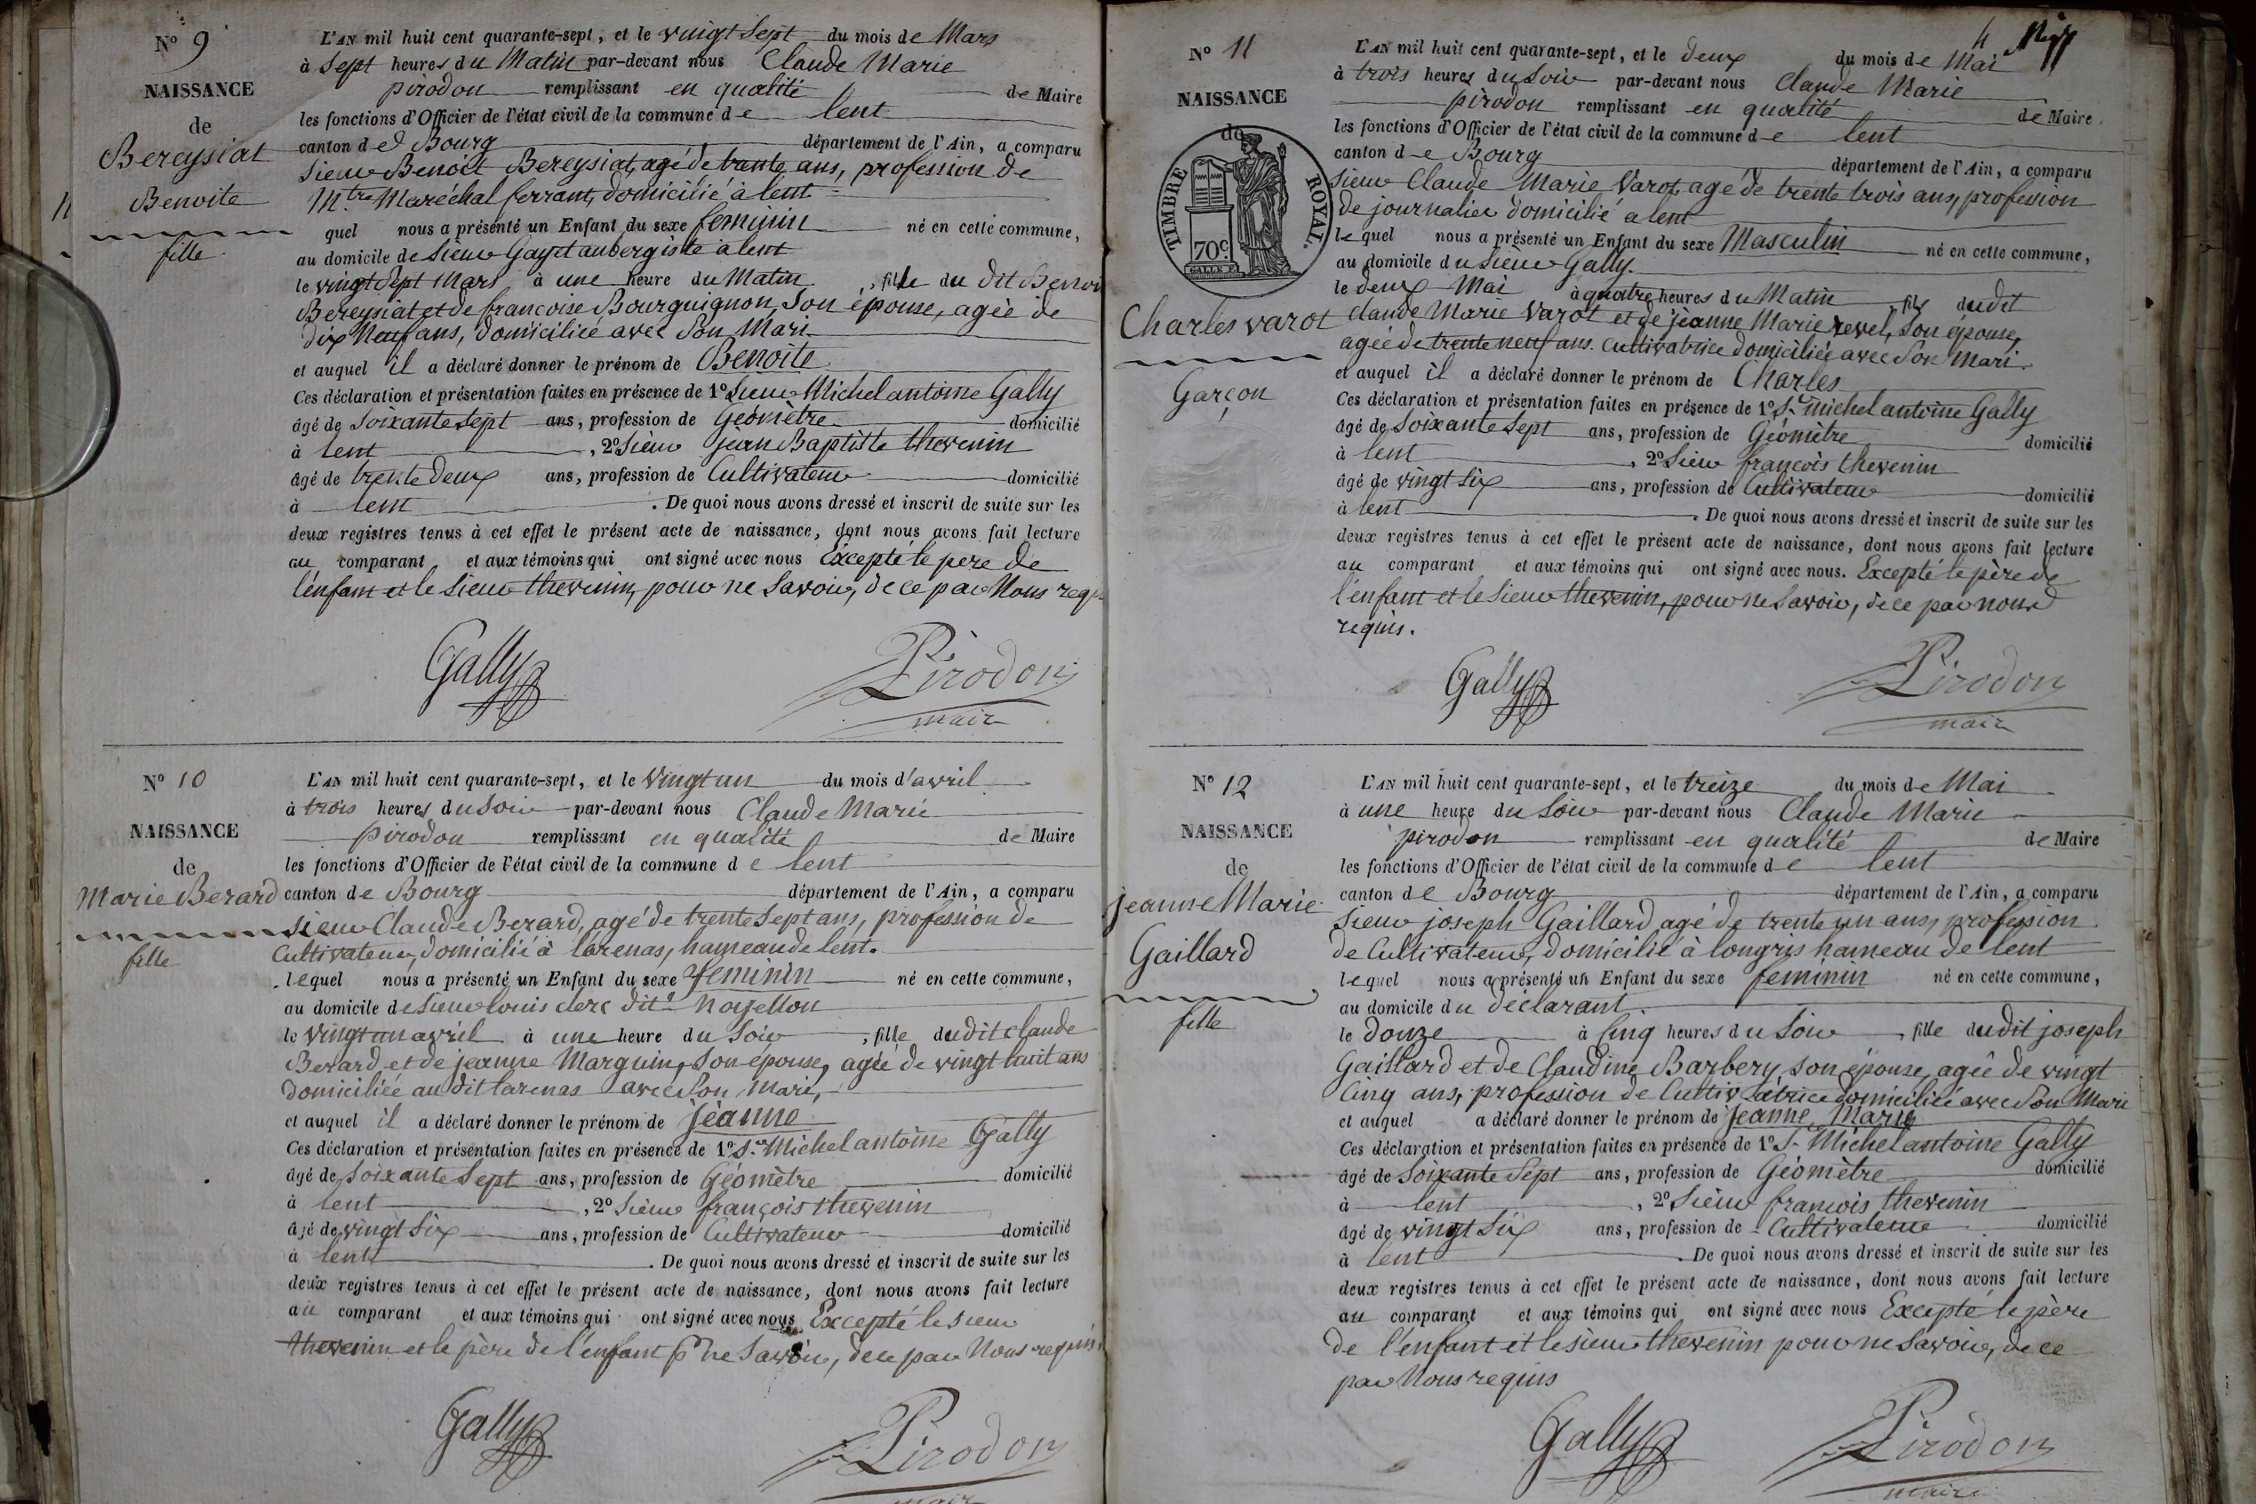 N° 9
NAISSANCE
de
Bereysiat
Benoite
fille
L'AN mil huit cent quarante-sept, et le vingt sept du mois de Mars
à sept heures du Matin par-devant nous Claude Marie
pirodon remplissant en qualité de Maire
les fonctions d'Officier de l'état civil de la commune de lent
canton de Bourg département de l'Ain, a comparu
Sieur Benoit Bereysiat, agé de trente ans, profession de
Mtre Maréchal ferrant, domicilié à lent
quel nous a présenté un Enfant du sexe feminin né en cette commune,
au domicile de Sieur Gayet aubergiste à lent
le vingt sept Mars à une heure du Matin, fille du dit Benoi
Bereysiat et de francoise Bourguignon, Son épouse, agée de
dix Neuf ans, domiciliée avec Son Mari
et auquel il a déclaré donner le prénom de Benoite
Ces déclaration et présentation faites en présence de 1° Sieur Michel antoine Gally
âgé de Soixante Sept ans, profession de Géomètre domicilié
à lent, 2° Sieur jean Baptiste thevenin
âgé de trente Deux ans, profession de Cultivateur domicilié
à lent. De quoi nous avons dressé et inscrit de suite sur les
deux registres tenus à cet effet le présent acte de naissance, dont nous avons fait lecture
au comparant et aux témoins qui ont signé avec nous Excepté le pere de
l'enfant et le Sieur thevenin, pour ne Savoir, de ce par Nous requ
Gally Pirodon
mair
N° 10
NAISSANCE
de
Marie Berard
fille
L'AN mil huit cent quarante-sept, et le Vingt un du mois d'avril
à trois heures du Soir par-devant nous Claude Marie
pirodon remplissant en qualité de Maire
les fonctions d'Officier de l'état civil de la commune de lent
canton de Bourg département de l'Ain, a comparu
Sieur Claude Berard, agé de trente Sept ans, profession de
Cultivateur, domicilié à larenas, hameau de lent.
lequel nous a présenté un Enfant du sexe feminin né en cette commune,
au domicile de Sieur louis clerc dit Noyellon
le Vingt un avril à une heure du Soir, fille du dit claude
Berard et de jeanne Marguin, Son épouse, agée de vingt huit ans
domiciliée au dit larenas avec Son Mari,
et auquel il a déclaré donner le prénom de jeanne
Ces déclaration et présentation faites en présence de 1° Sr Michel antoine Gally
âgé de Soixante Sept ans, profession de Géomètre domicilié
à lent, 2° Sieur françois thevenin
âgé de vingt Six ans, profession de Cultivateur domicilié
à lent. De quoi nous avons dressé et inscrit de suite sur les
deux registres tenus à cet effet le présent acte de naissance, dont nous avons fait lecture
au comparant et aux témoins qui ont signé avec nous Excepté le sieur
thevenin et le père de l'enfant pr ne Savoir, de ce par Nous requis.
Gally Pirodon
mair
4
N° 11
NAISSANCE
de
TIMBRE ROYAL.
70c
Charles varot
Garçon
L'AN mil huit cent quarante-sept, et le deux du mois de Mai
à trois heures du Soir par-devant nous Claude Marie
pirodon remplissant en qualité de Maire
les fonctions d'Officier de l'état civil de la commune de lent
canton de Bourg département de l'Ain, a comparu
Sieur Claude Marie Varot, agé de trente trois ans, profession
de journalier domicilié a lent
lequel nous a présenté un Enfant du sexe Masculin né en cette commune,
au domicile du Sieur Gally.
le deux Mai à quatre heures du Matin fils dudit
claude Marie Varot et de jeanne Marie revel, Son épouse,
agée de trente neuf ans. Cultivatrice domiciliée avec Son Mari.
et auquel il a déclaré donner le prénom de Charles
Ces déclaration et présentation faites en présence de 1° Sr michel antoine Gally
âgé de Soixante Sept ans, profession de Géomètre domicilié
à lent, 2° Sieur françois thevenin
âgé de vingt Six ans, profession de Cultivateur domicilié
à lent. De quoi nous avons dressé et inscrit de suite sur les
deux registres tenus à cet effet le présent acte de naissance, dont nous avons fait lecture
au comparant et aux témoins qui ont signé avec nous. Excepté le père de
l'enfant et le Sieur thevenin, pour ne Savoir, de ce par nous
requis.
Gally Pirodon
mair
N° 12
NAISSANCE
de
jeanne Marie
Gaillard
fille
L'AN mil huit cent quarante-sept, et le treize du mois de Mai
à une heure du Soir par-devant nous Claude Marie
pirodon remplissant en qualité de Maire
les fonctions d'Officier de l'état civil de la commune de lent
canton de Bourg département de l'Ain, a comparu
Sieur joseph Gaillard agé de trente un ans, profession
de Cultivateur, domicilié à longris hameau de lent
lequel nous a présenté un Enfant du sexe feminin né en cette commune,
au domicile du déclarant
le Douze à Cinq heures du Soir, fille du dit joseph
Gaillard et de Claudine Barbery, son épouse, agée de vingt
Cinq ans, profession de Cultivatrice domiciliée avec Son Mari
et auquel a déclaré donner le prénom de jeanne Marie
Ces déclaration et présentation faites en présence de 1° Sr Michel antoine Gally
âgé de Soixante Sept ans, profession de Géomètre domicilié
à lent, 2° Sieur francois thevenin
âgé de vingt Six ans, profession de Cultivateur domicilié
à lent. De quoi nous avons dressé et inscrit de suite sur les
deux registres tenus à cet effet le présent acte de naissance, dont nous avons fait lecture
au comparant et aux témoins qui ont signé avec nous Excepté le père
de l'enfant et le sieur thevenin pour ne Savoir, de ce
par Nous requis
Gally Pirodon
maire